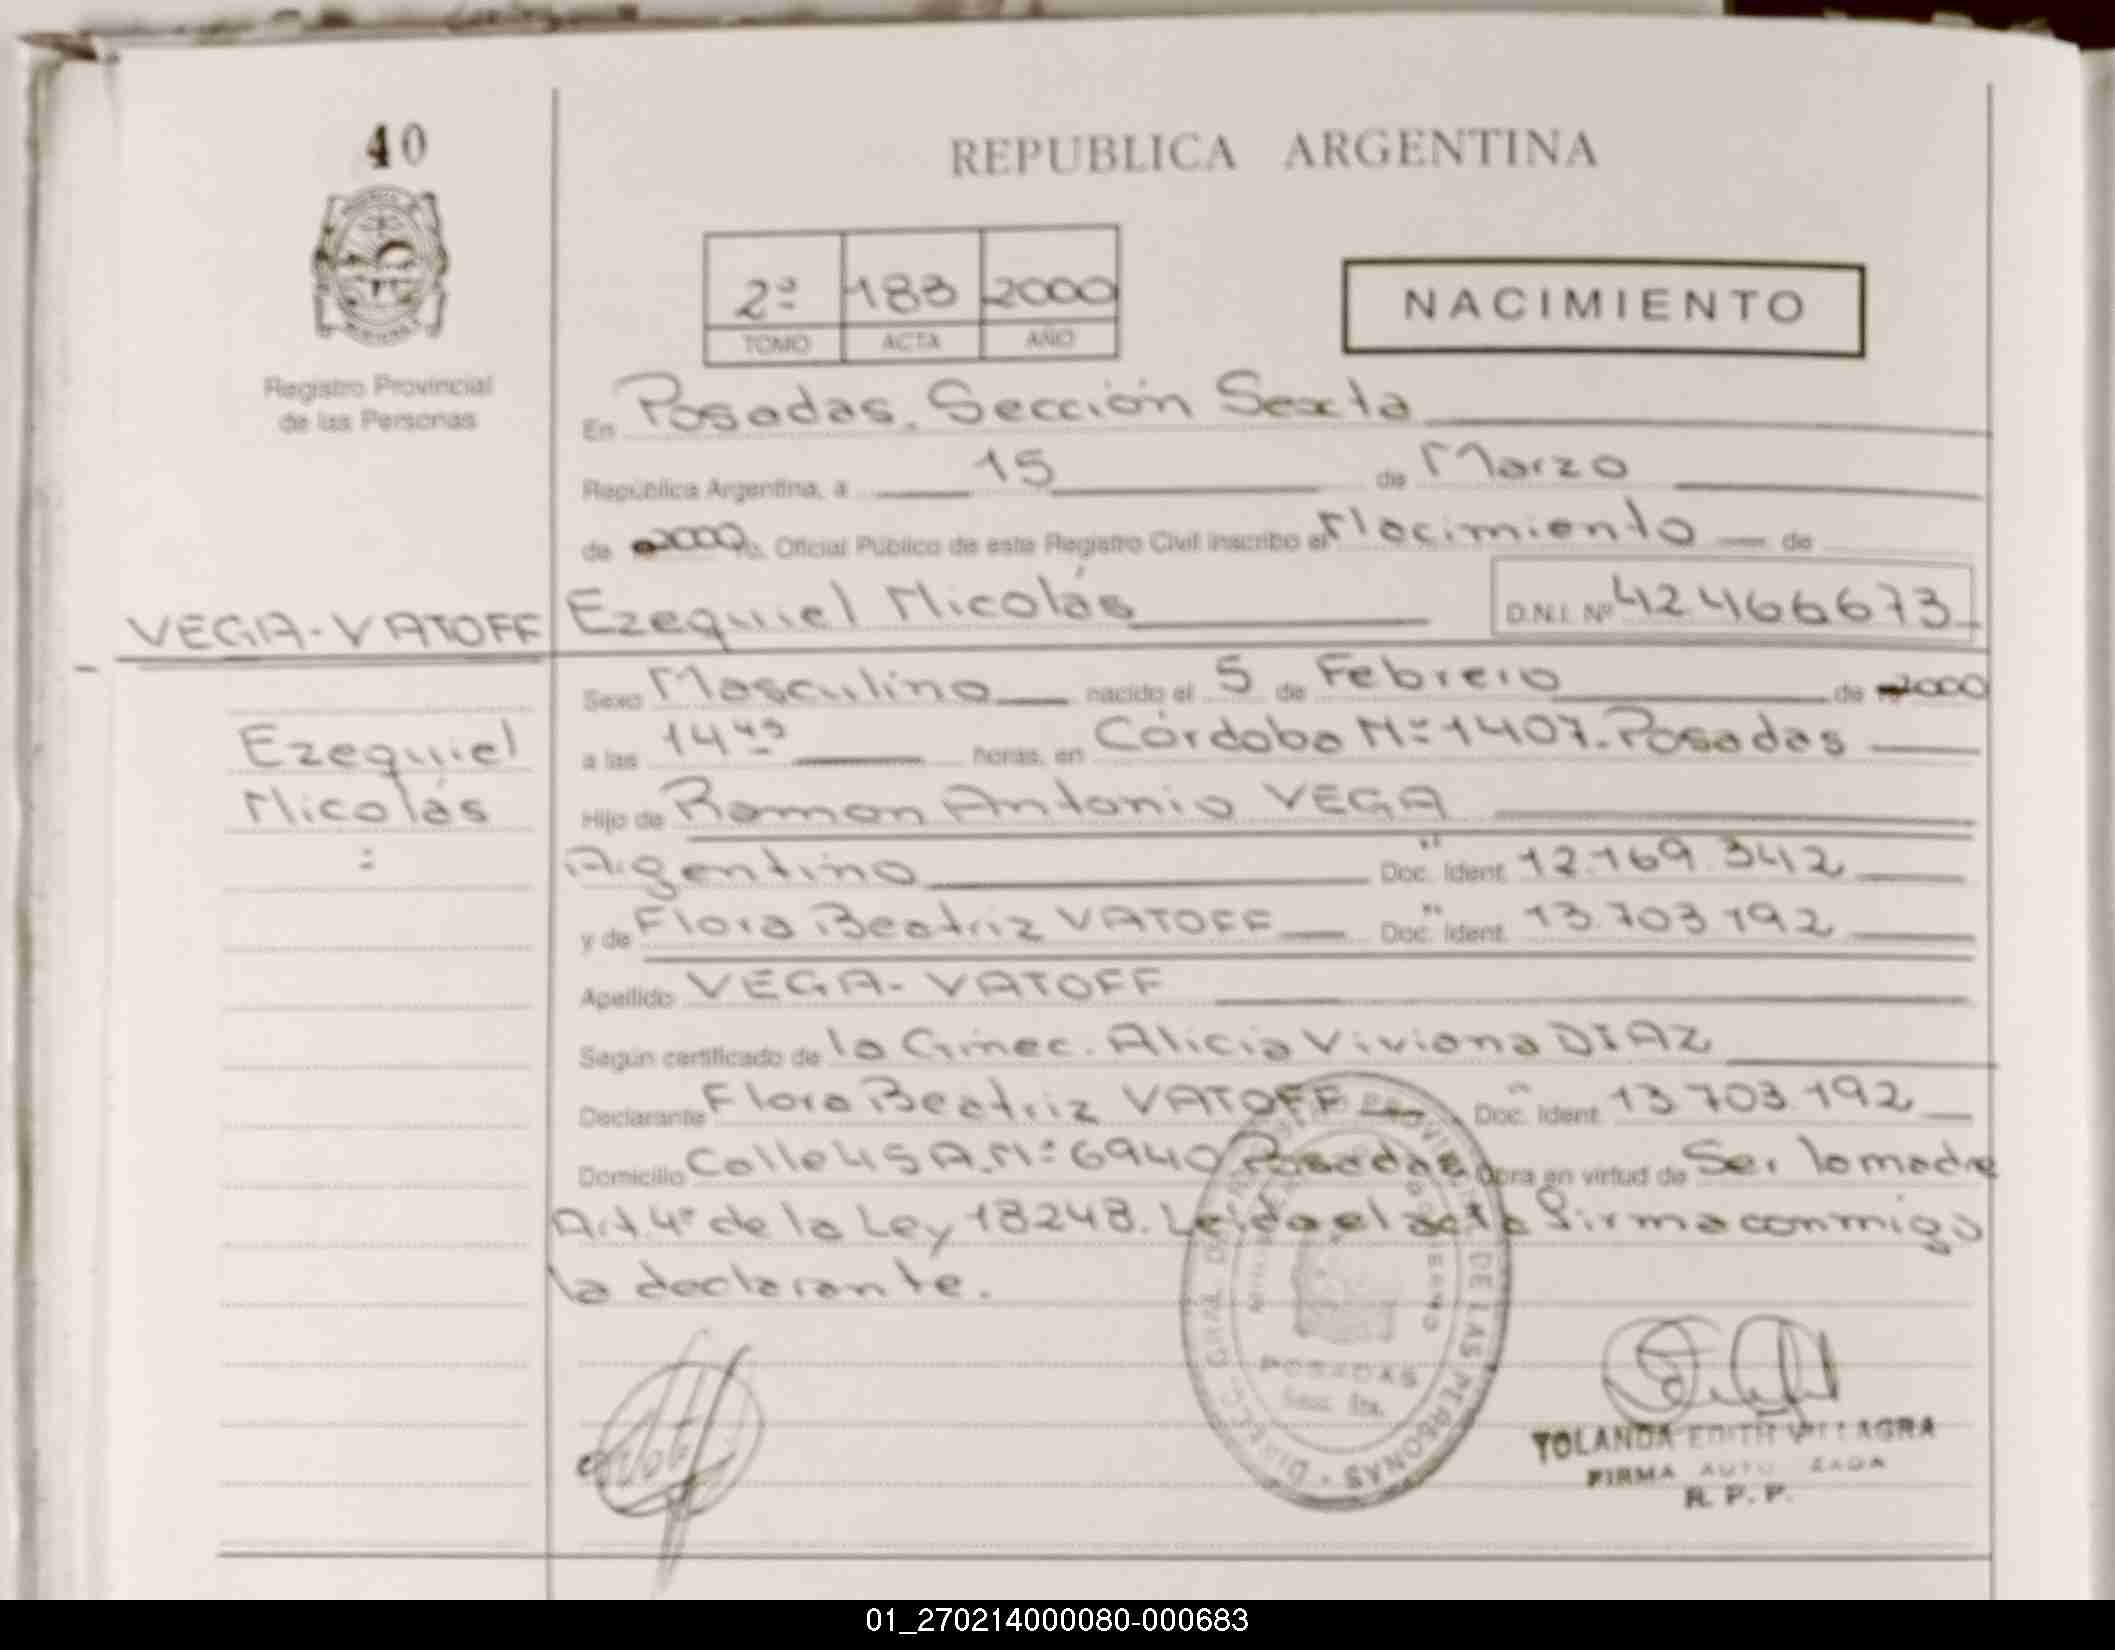 40
REPUBLICA ARGENTINA
2ª 183 2000
TOMO ACTA AÑO
NACIMIENTO
Registro Provincial
de las Personas
En Posadas, Sección Sexta
República Argentina, a 15 de Marzo
de 2000 Oficial Público de este Registro Civil inscribo el Nacimiento de
VEGA-VATOFF Ezequiel Nicolás D.N.I. Nº 42466673
Sexo Masculino nacido el 5 de Febrero de 2000
Ezequiel
a las 14 45 horas, en Córdoba Nº 1407. Posadas
Nicolás
Hijo de Ramon Antonio VEGA
Argentino Doc. Ident. 12.169.342
y de Flora Beatriz VATOFF Doc. Ident. 13.703.192
Apellido VEGA-VATOFF
Según certificado de la Ginec. Alicia Viviana DIAZ
Declarante Flora Beatriz VATOFF Doc. Ident. 13.703.192
Domicilio Calle 45 A. Nº 6940 Posadas Obra en virtud de Ser la madre
Art. 4º de la Ley 18248. Leida el acta firma conmigo
la declarante.
DIRECC. GRAL. DEL REGISTRO PROVINCIAL DE LAS PERSONAS
POSADAS
Secc. 6ta.
YOLANDA EDITH VILLAGRA
FIRMA AUTORIZADA
R. P. P.
01_270214000080-000683